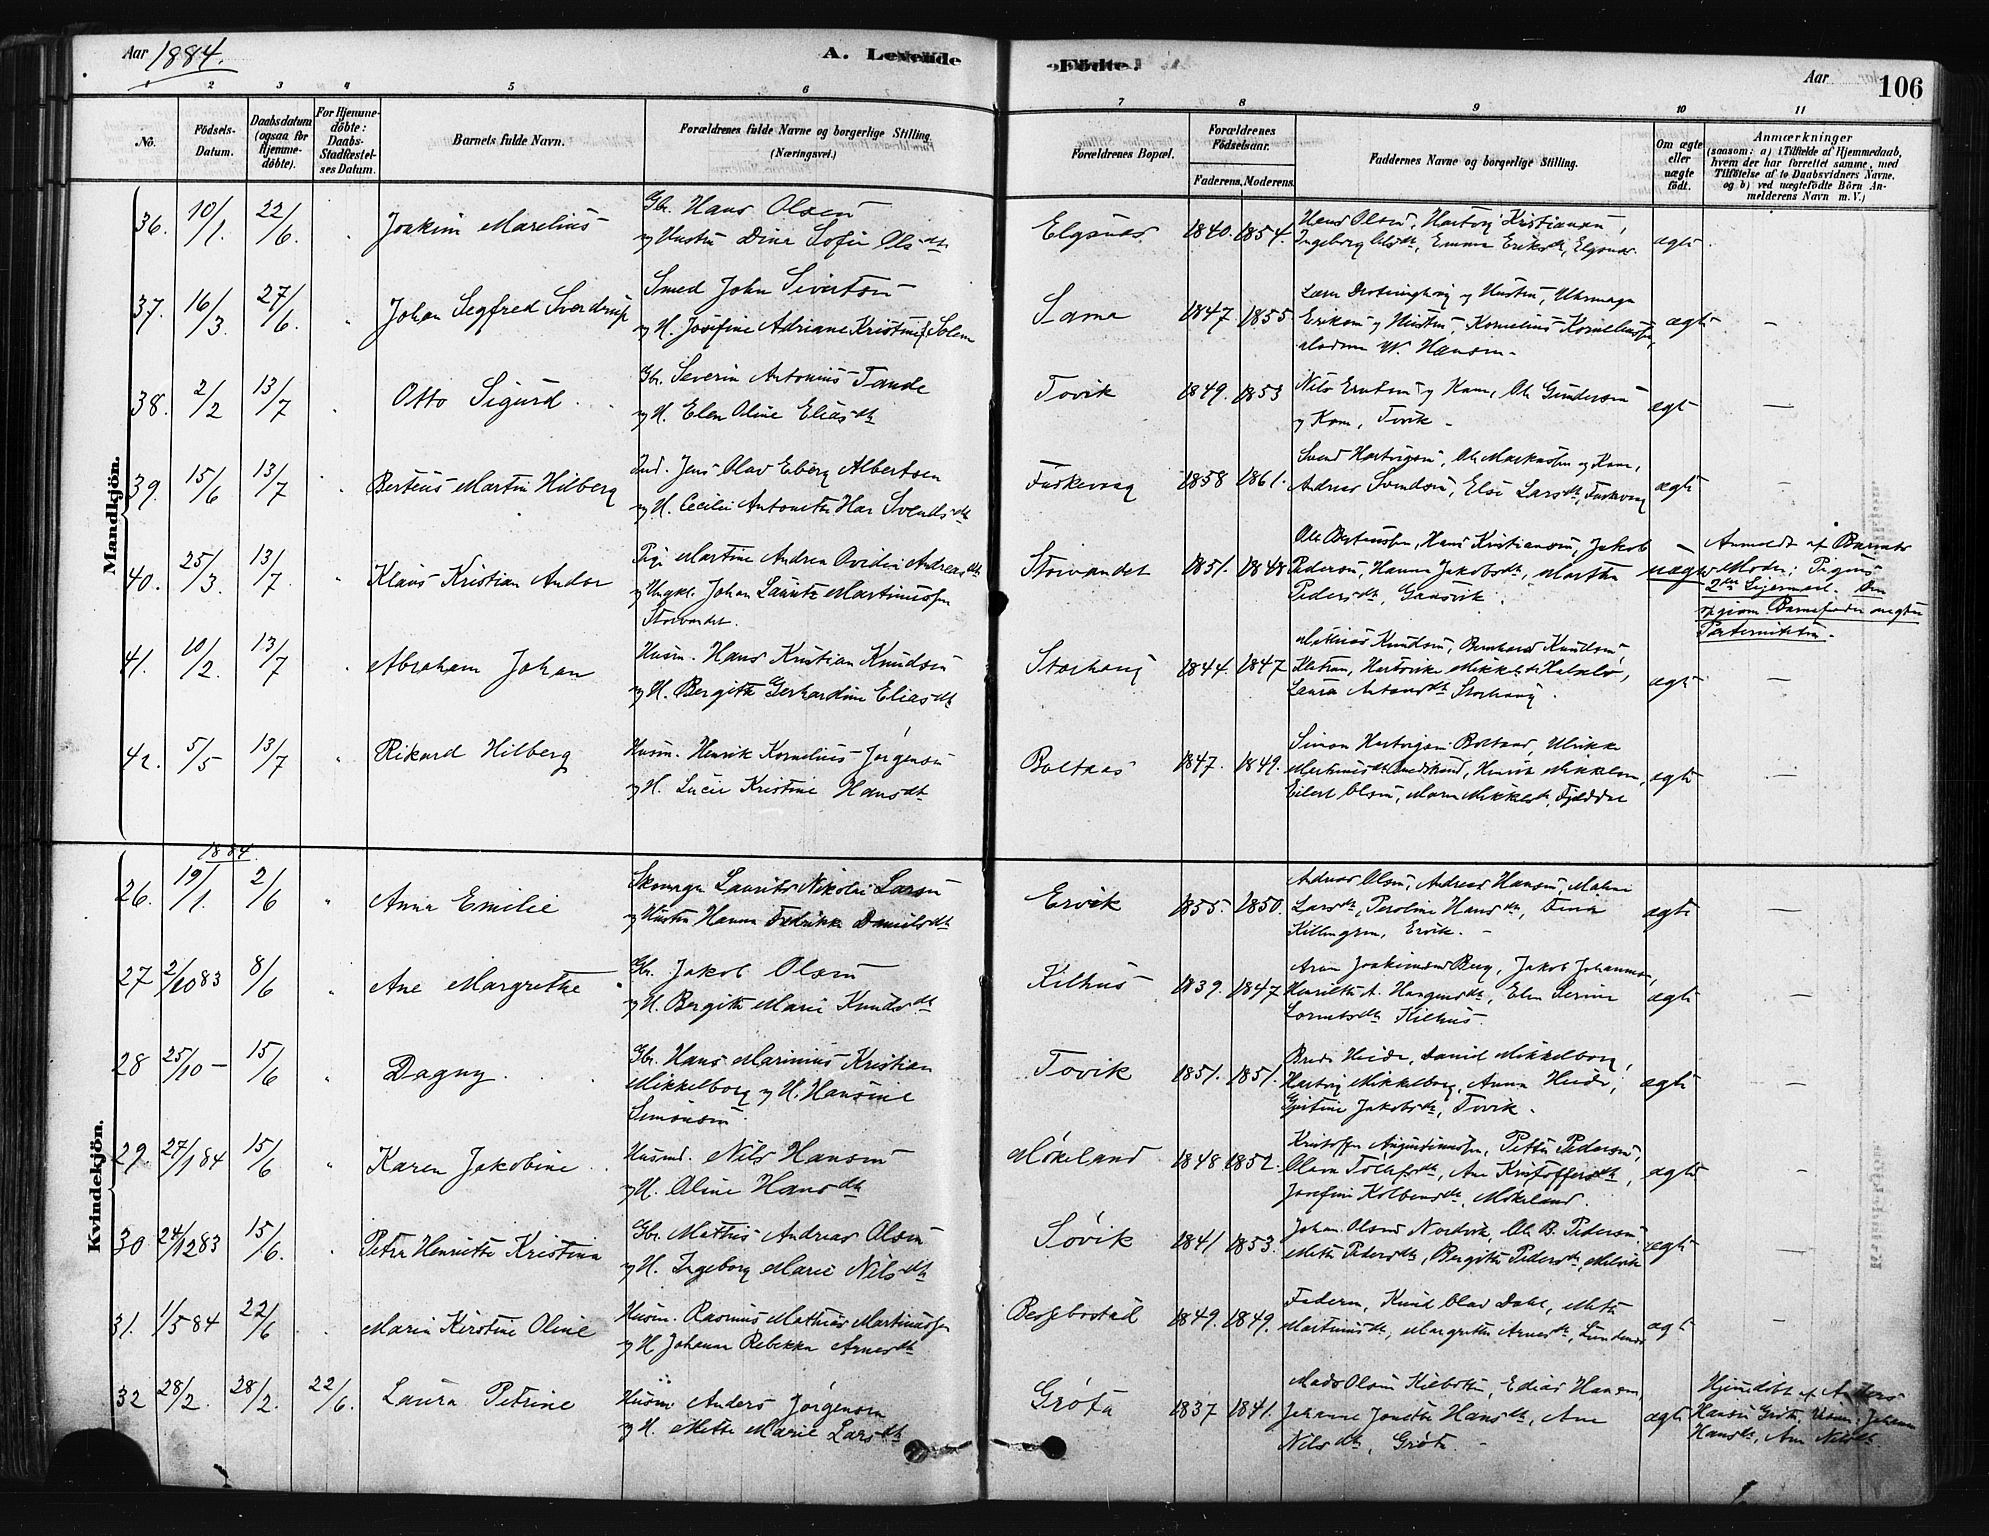 Aar 1884.
A. Levende
Födte.
Aar
106
1 2 3 4 5 6 7 8 9 10 11
No.
Födsels-
Datum.
Daabsdatum
(ogsaa for
Hjemme-
döbte).
For Hjemme-
döbte:
Daabs-
Stadfæstel-
ses Datum.
Barnets fulde Navn.
Forældrenes fulde Navne og borgerlige Stilling.
(Næringsvei.)
Forældrenes Bopæl.
Forældrenes
Födselsaar.
Faderens. Moderens.
Faddernes Navne og borgerlige Stilling.
Om ægte
eller
uægte
födt.
Anmærkninger
(saasom: a) i Tilfælde af Hjemmedaab,
hvem der har forrettet samme, med
Tilföielse af to Daabsvidners Navne,
og b) ved uægtefödte Börn An-
melderens Navn m.V.)
Mandkjön.
36. 10/1. 22/6. Joakim Marelius
Gbr. Hans Olsen
og Hustru Dina Sofie Olsdt
Elgsnes 1840. 1854.
Hans Olsen, Hartvig Kristiansen,
Ingeborg Olsdt, Emma Eriksdt, Elgsnes
ægte
37. 16/3. 27/6. Johan Segfred Sverdrup
Smed John Sivertsen
og H. Josefine Adriane Kristine f. Solem
Sama 1847 1855
Eriksen og Hustru, Kornelius Korneliussen,
W. Hansen
ægte –
38. 2/2 13/7 Otto Sigurd
Gbr. Severin Antonius Tande
og H. Elen Oline Eliasdt
Tovik 1849. 1853
og Kone, Ole Gundersen
og Kone, Tovik
ægte –
39. 15/6 13/7 Berteus Martin Hilberg
Ind. Jens Olav Eberg Albertsen
og H. Cecilie Antonette Har Svendsdt
Fuskevaag 1858 1861.
Svend Hartvigsen, Ole Markussen og Kone,
Andreas Svendsen, Else Larsdt, Fuskvaag
ægte –
40. 25/3. 13/7. Klaus Kristian Andor
Pige Martine Andrea Ovidia Andreasdt
og Ungkl. Johan Lauritz Martinussen
Storvandet.
Storvandet 1851. 1848
Ole Bertinussen, Hans Kristiansen, Jakob
Pedersen, Hanna Jakobsdt, Martha
Pedersdt, Gausvik.
uægte
Anmeldt af Barnets
Moder; Pigens
2den Leiermaal. Den
opgivne Barnefader nægter
Paterniteten.
41. 10/2. 13/7 Abraham Johan
Husm. Hans Kristian Knudsen
og H. Bergitte Gerhardine Eliasdt
Storhaug 1844. 1847
Mathias Knudsen, Bernhard Knudsen
Laura Antonsdt Storhaug.
ægte –
42. 5/5 13/7 Rikard Hilberg
Husm. Henrik Kornelius Jørgensen
og H. Lucie Kristine Hansdt
Boltaas 1847. 1849.
Simon Hartvigsen Boltaas, Ulrikke
Martinusdt, Henrik Mikkelsen,
Eilert Olsen, Maren Mikkelsdt, Fjelddal
ægte –
Kvindekjön.
1884.
26. 19/1. 2/6 Anna Emilie
Skomager Laurits Nikolai Larsen
og Hustru Hanna Fredrikke Danielsdt
Ervik 1855. 1850.
Andreas Olsen, Andreas Hansen, Maline
Larsdt, Peroline Hansdt, Tina
Killingren, Ervik. –
ægte –
27 2/10 83 8/6 Ane Margrethe
Gbr. Jakob Olsen
og H. Bergitte Marie Knudsdt
Kilhus 1839. 1847
Aron Joakimsen Berg, Jakob Johannesen,
Henriette A. Hangensdt, Elen Serine
Lorentsdt Kilhus.
ægte –
28 25/10 – 15/6 Dagny
Gbr. Hans Marinius Kristian
Mikkelborg og H. Hansine
Simonsen
Tovik 1851. 1851.
Brede Heide, Daniel Mikkelborg,
Hartvig Mikkelborg, Anna Heide,
Gjertine Jakobsdt, Tovik.
ægte –
29. 27/1 84 15/6 Karen Jakobine
Husmd. Nils Hansen
og H. Oline Hansdt
Møkeland 1848 1852.
Kristoffer Augustinussen, Petter Pedersen,
Olava Tollefsdt, Ane Kristoffersdt,
Josefine Kolbensdt, Møkeland.
ægte –
30 24/12 83 15/6. Petra Henriette Kristina
Gbr. Mathis Andreas Olsen
og H. Ingeborg Marie Nilsdt
Søvik 1841 1853.
Johan Olsen Nordvik, Ole B. Pedersen
Mette Pedersdt, Bergitte Pedersdt, Melvik
ægte
31. 1/5 84 22/6 Maria Kirstine Oline
Husm. Rasmus Mathias Martinussen
og H. Johanna Rebekka Arnesdt
Bessebostad 1849. 1849.
Faderen, Knud Olav Dahl, Mette
Martinusdt, Margrethe Arnesdt, Lundenes
ægte –
32 28/2. 28/2. 22/6. Laura Petrine
Husm Anders Jørgensen
og H. Mette Marie Larsdt
Grøta 1837 1841.
Mads Olsen Kilbotn, Edias Hansen,
Johanne Jonette Hansdt, Ane
Nilsdt, Grøta –
ægte
Hjemdøbt af Anders
Hansen Grøta. Vidner: Johanne
Hansdt, Ane Nilsdt